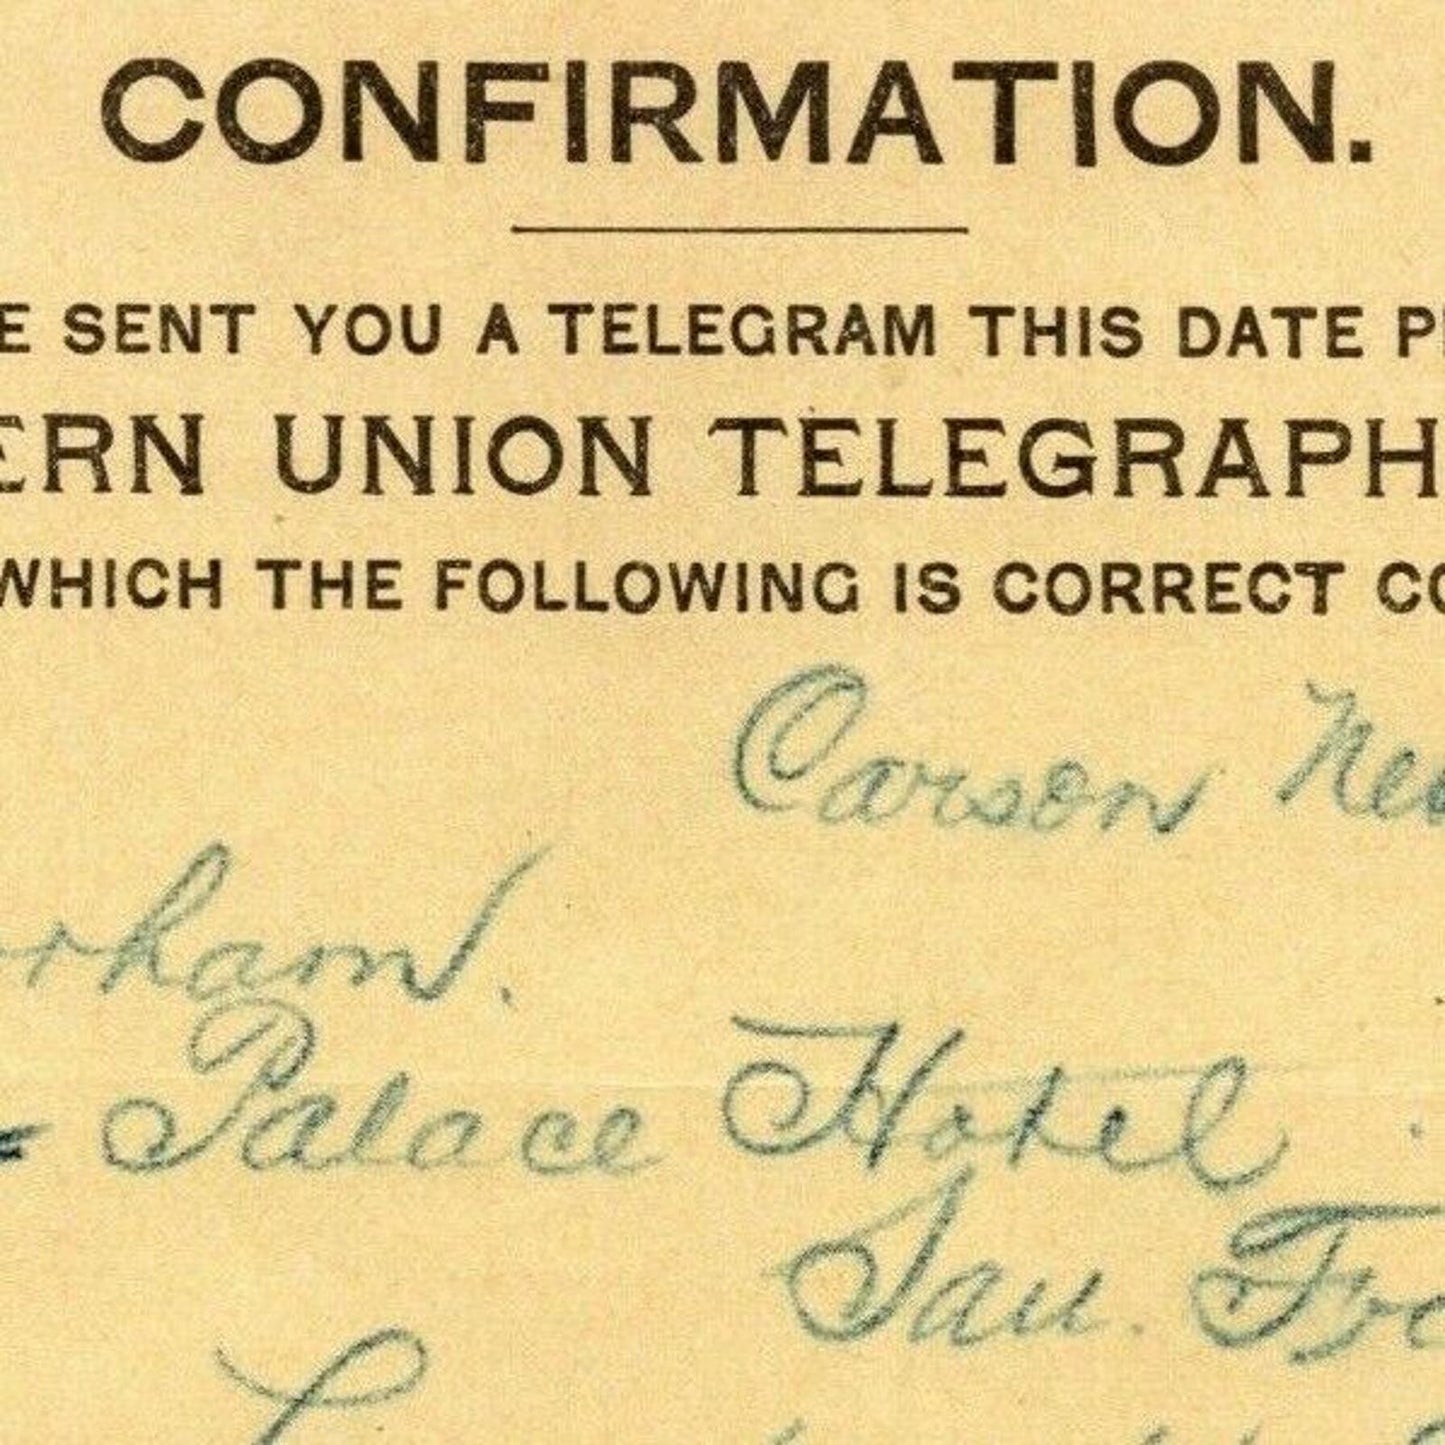 CONFIRMATION.
E SENT YOU A TELEGRAM THIS DATE P
ERN UNION TELEGRAPH
WHICH THE FOLLOWING IS CORRECT CO
Carson Nev
rham.
= Palace Hotel.
San. Fra